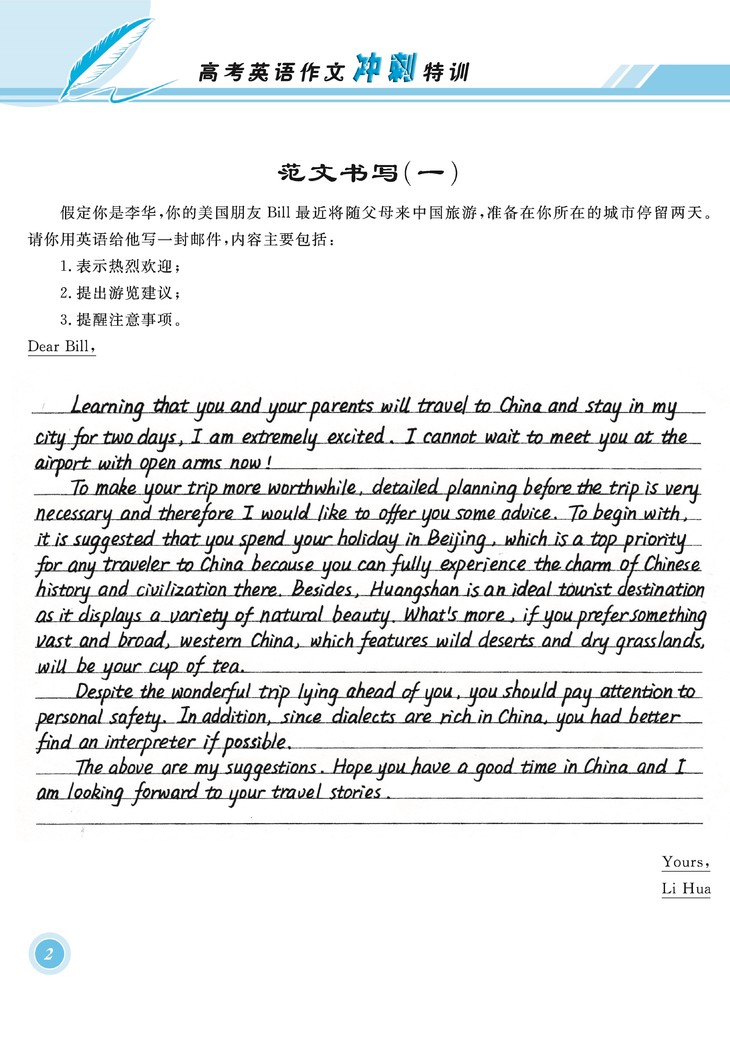 高考英语作文冲刺特训
范文书写(一)
假定你是李华,你的美国朋友 Bill 最近将随父母来中国旅游,准备在你所在的城市停留两天。
请你用英语给他写一封邮件,内容主要包括:
1. 表示热烈欢迎;
2. 提出游览建议;
3. 提醒注意事项。
Dear Bill,
Learning that you and your parents will travel to China and stay in my
city for two days, I am extremely excited. I cannot wait to meet you at the
airport with open arms now!
To make your trip more worthwhile, detailed planning before the trip is very
necessary and therefore I would like to offer you some advice. To begin with,
it is suggested that you spend your holiday in Beijing, which is a top priority
for any traveler to China because you can fully experience the charm of Chinese
history and civilization there. Besides, Huangshan is an ideal tourist destination
as it displays a variety of natural beauty. What's more, if you prefer something
vast and broad, western China, which features wild deserts and dry grasslands,
will be your cup of tea.
Despite the wonderful trip lying ahead of you, you should pay attention to
personal safety. In addition, since dialects are rich in China, you had better
find an interpreter if possible.
The above are my suggestions. Hope you have a good time in China and I
am looking forward to your travel stories.
Yours,
Li Hua
2